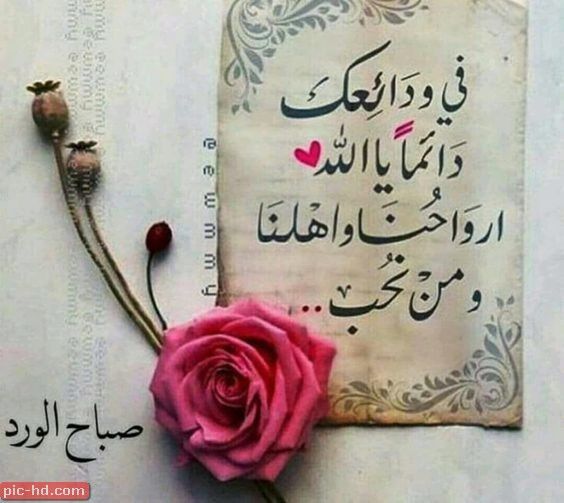 في ودَائِعك
دَائماً يا الله
اروَاحُنَا واهْلنَا
ومنْ نحُب ..
صباح الورد
@ewwmmy
pic-hd.com